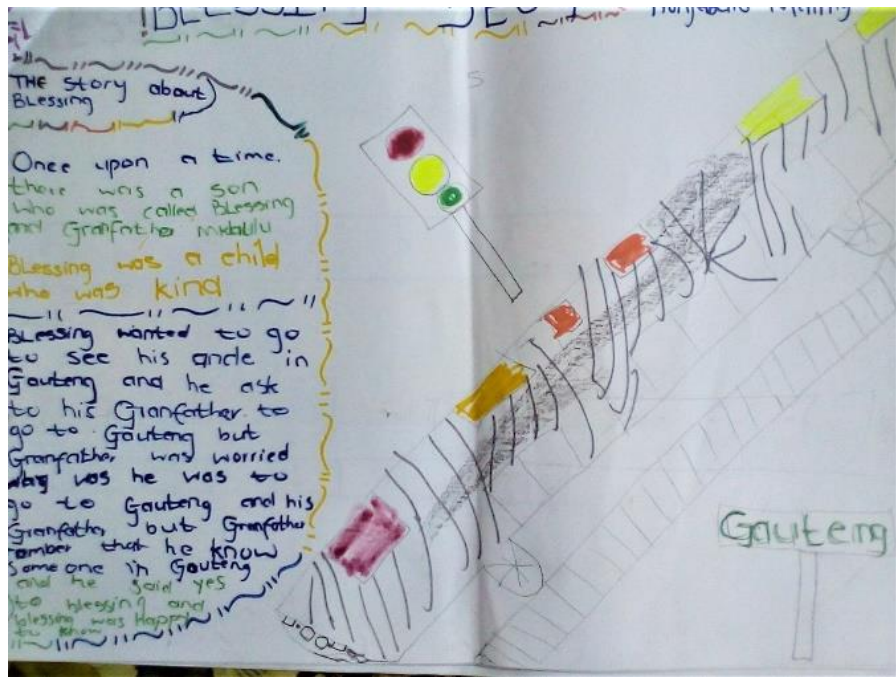 THE Story about
BLessing
Once upon a time.
there was a son
who was called Blessing
and Granfather
BLessing was a child
who was kind
BLessing wanted to go
to see his ancle in
Gauteng and he ask
to his Granfather to
go to Gauteng but
Granfather was worried
was he was to
go to Gauteng and his
Granfather but Granfather
omber that he know
Some one in Gauteng
and he said yes
to blessing and
blessing was Happy
to know
Gauteng